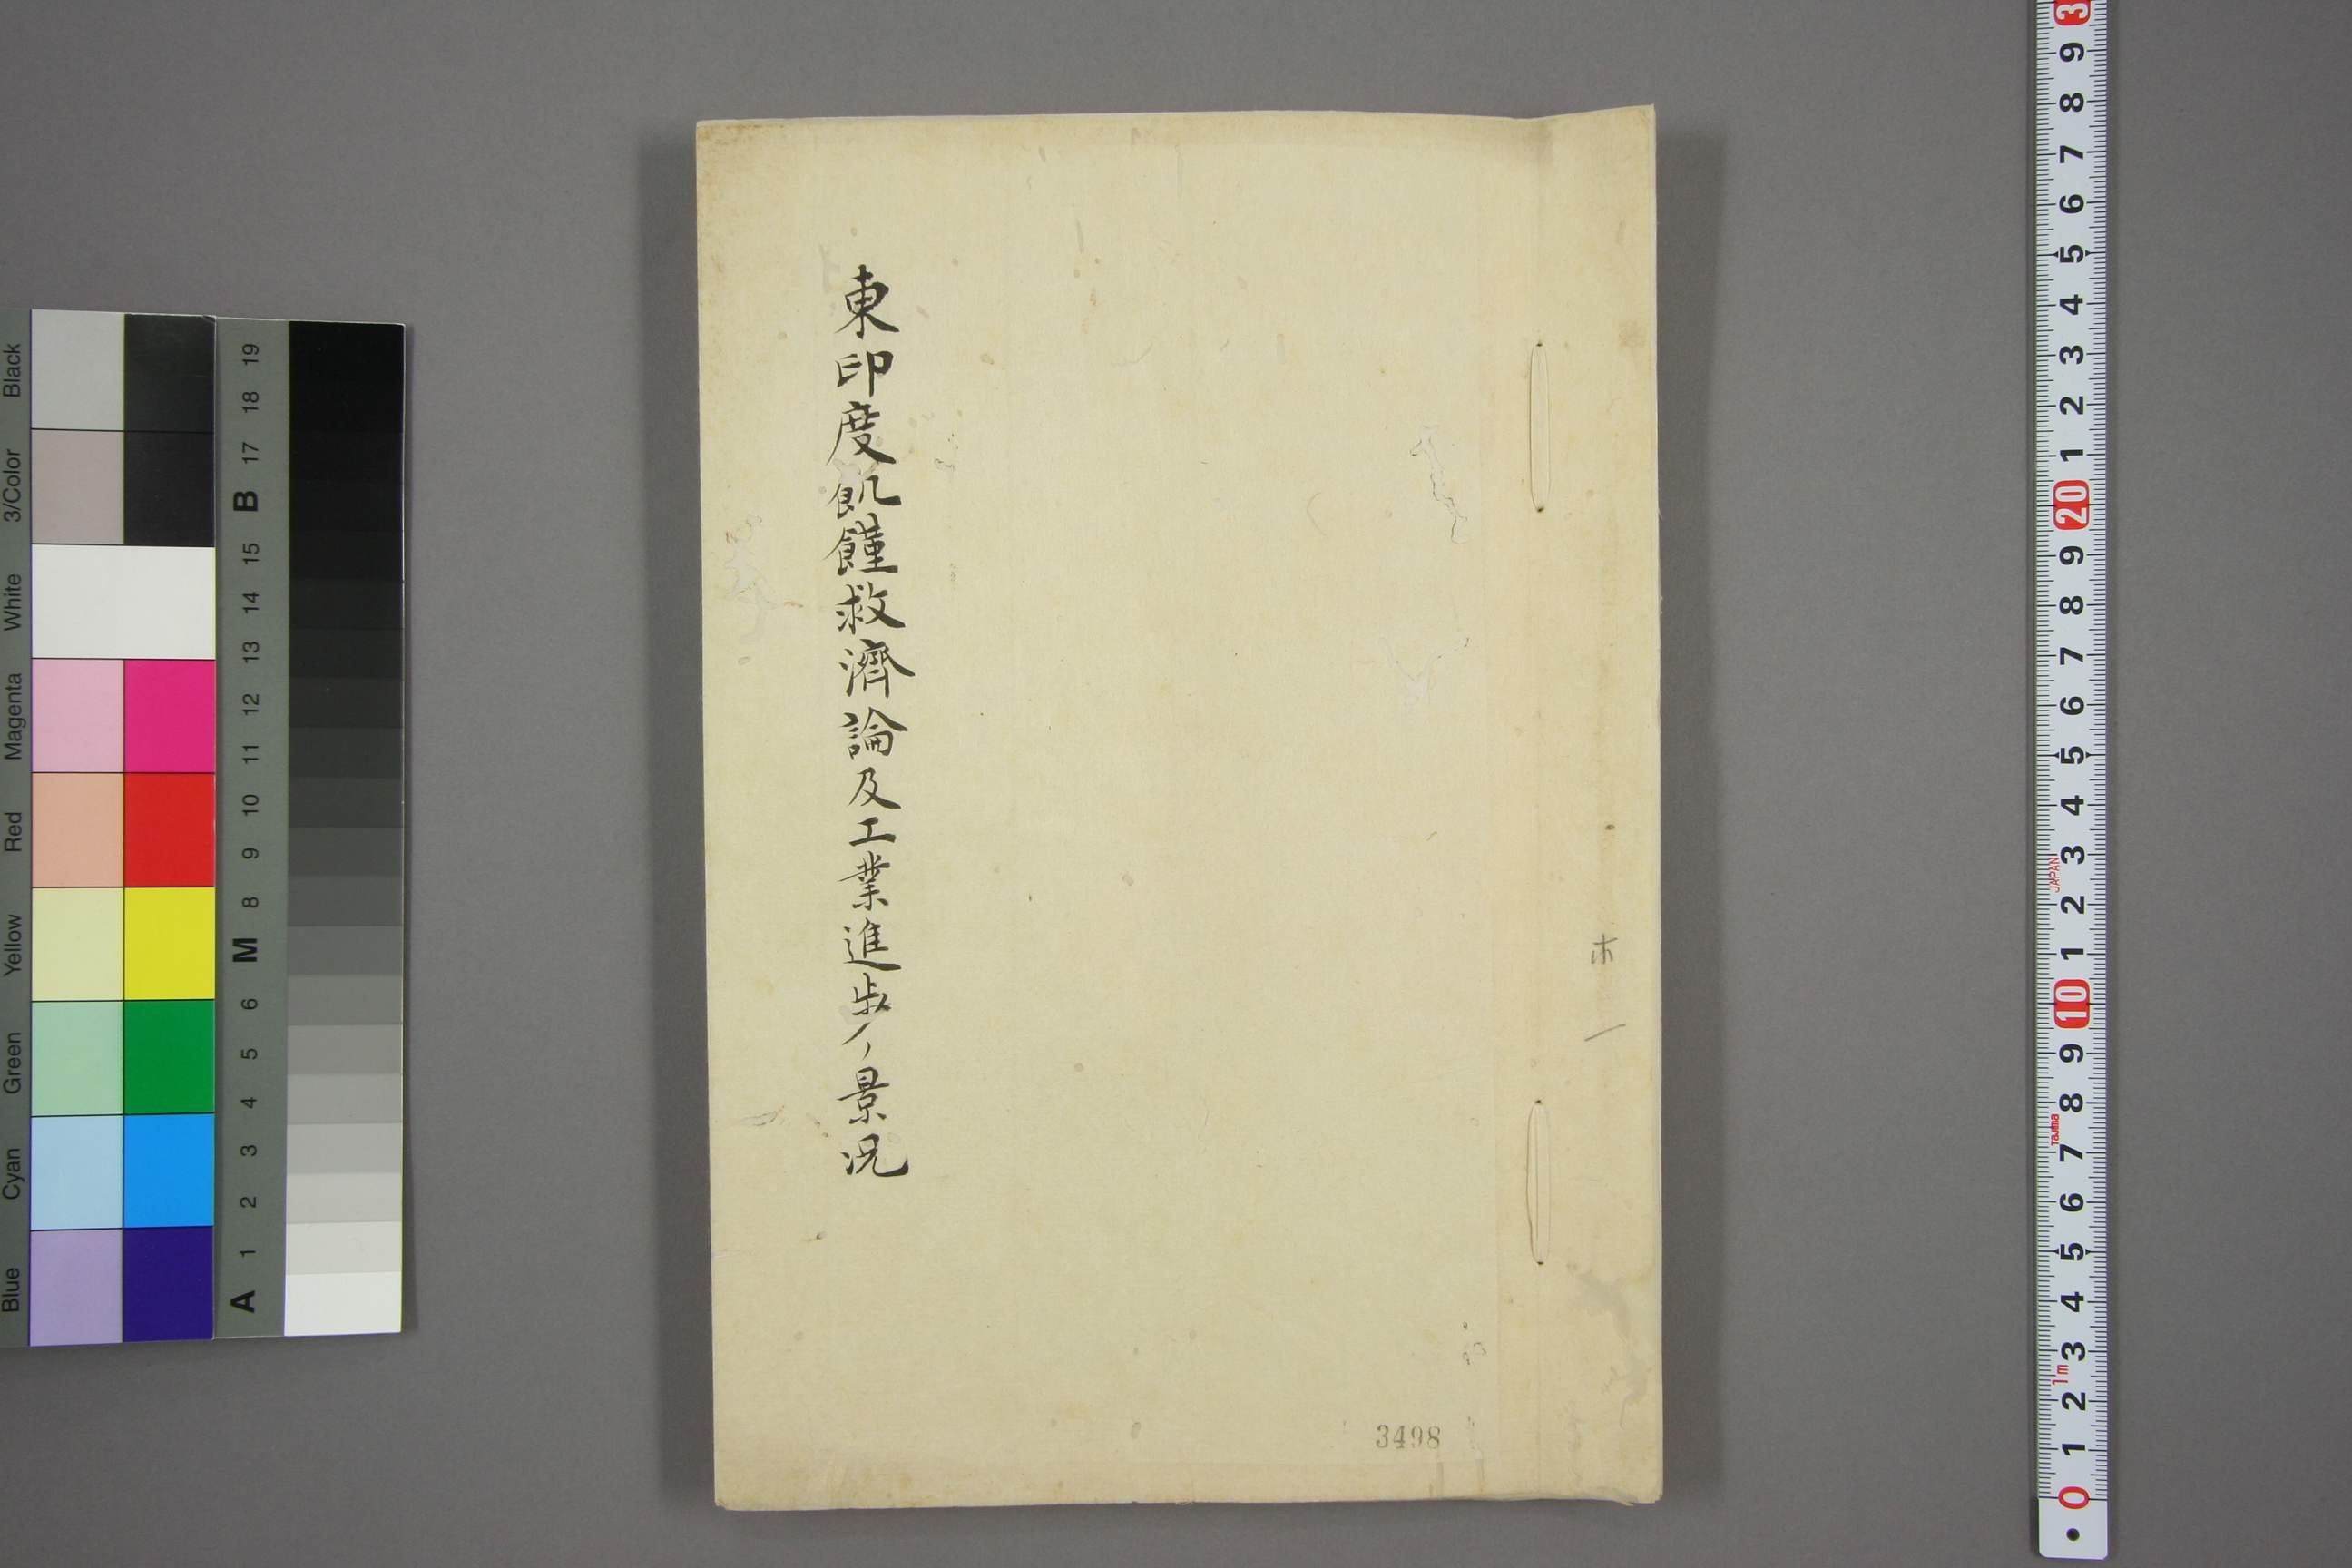 東印度飢饉救濟論及工業進歩ノ景况
ホ
一
3498
Black
3/Color
White
Magenta
Red
Yellow
Green
Cyan
Blue
19
18
17
B
15
14
13
12
11
10
9
8
M
6
5
4
3
2
1
A
3
9
8
7
6
5
4
3
2
1
20
9
8
7
6
5
4
3
JAPAN
2
1
10
9
8
Tajima
7
6
5
4
3
1m
2
1
0